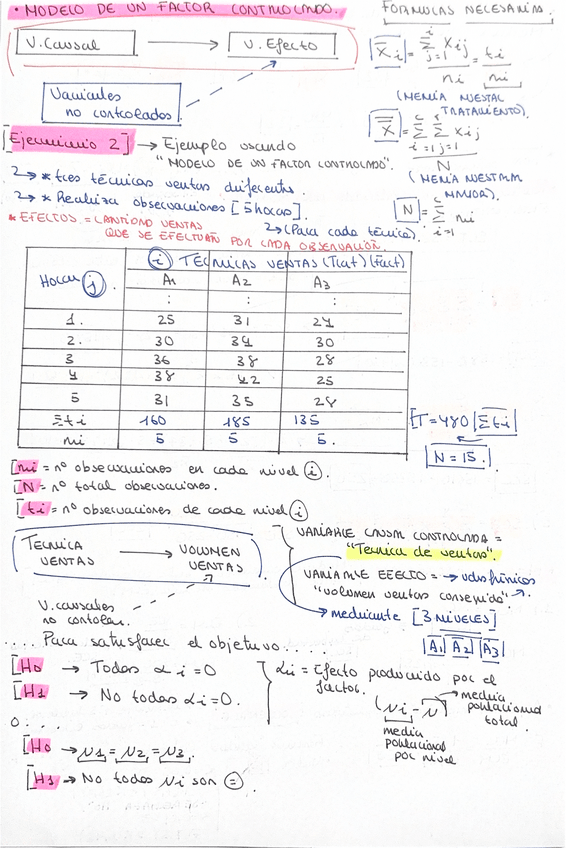 • MODELO DE UN FACTOR CONTROLADO.
V. Causal → V. Efecto
Variables
no controladas
FORMULAS NECESARIAS.
X̄i = Σ j=1 Xij / ni = ti / ni
(MEDIA MUESTRAL
TRATAMIENTO).
X̄ = Σ i=1 Σ j=1 Xij / N
(MEDIA MUESTRAL
N = Σ i=1 ni
[Ejercicio 2] → Ejemplo usando
"MODELO DE UN FACTOR CONTROLADO".
→ * tres técnicas ventas diferentes.
→ * Realiza observaciones [5 horas].
→ (Para cada técnica).
* EFECTOS = CANTIDAD VENTAS
QUE SE EFECTUAN POR CADA OBSERVACIÓN.
Horas j | i TECNICAS VENTAS (Trat) (Fact)
A1 A2 A3
: : :
1. 25 31 24
2. 30 34 30
3 36 38 28
4 38 42 25
5 31 35 28
Σti 160 185 135
ni 5 5 5.
[T = 480 |Σti|
N = 15.
[ni = nº observaciones en cada nivel i.
[N = nº total observaciones.
[ti = nº observaciones de cada nivel i
TECNICA VENTAS → VOLUMEN VENTAS
V. causales
no controlan.
VARIABLE CAUSA CONTROLADA =
"Tecnica de ventas".
VARIABLE EFECTO = →
"volumen ventas conseguido"
→ mediante [3 NIVELES]
|A1| A2| A3|
.... Para satisfacer el objetivo.....
[H0 → Todas αi = 0
[H1 → No todas αi = 0.
αi = Efecto producido por el
factor.
(μi - μ)
→ media
poblacional
total.
media
poblacional
por nivel
O....
[H0 → μ1 = μ2 = μ3.
[H1 → No todas μi son =.